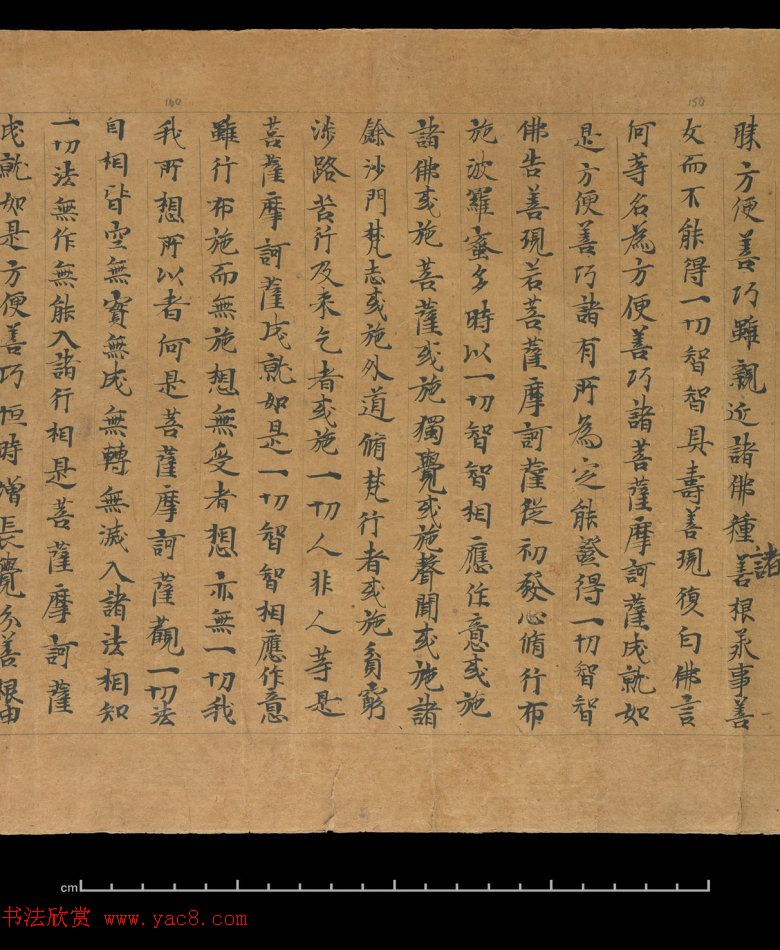 160
150
昧方便善巧雖親近諸佛種諸善根承事善
友而不能得一切智智具壽善現復白佛言
何等名為方便善巧諸菩薩摩訶薩成就如
是方便善巧諸有所為定能證得一切智智
佛告善現若菩薩摩訶薩從初發心脩行布
施波羅蜜多時以一切智智相應作意或施
諸佛或施菩薩或施獨覺或施聲聞或施諸
餘沙門梵志或施外道脩梵行者或施貧窮
涉路苦行及來乞者或施一切人非人等是
菩薩摩訶薩成就如是一切智智相應作意
雖行布施而無施想無受者想亦無一切我
我所想所以者何是菩薩摩訶薩觀一切法
自相皆空無實無成無轉無滅入諸法相知
一切法無作無能入諸行相是菩薩摩訶薩
成就如是方便善巧恒時增長殊勝善根由
cm
书法欣赏 www.yac8.com